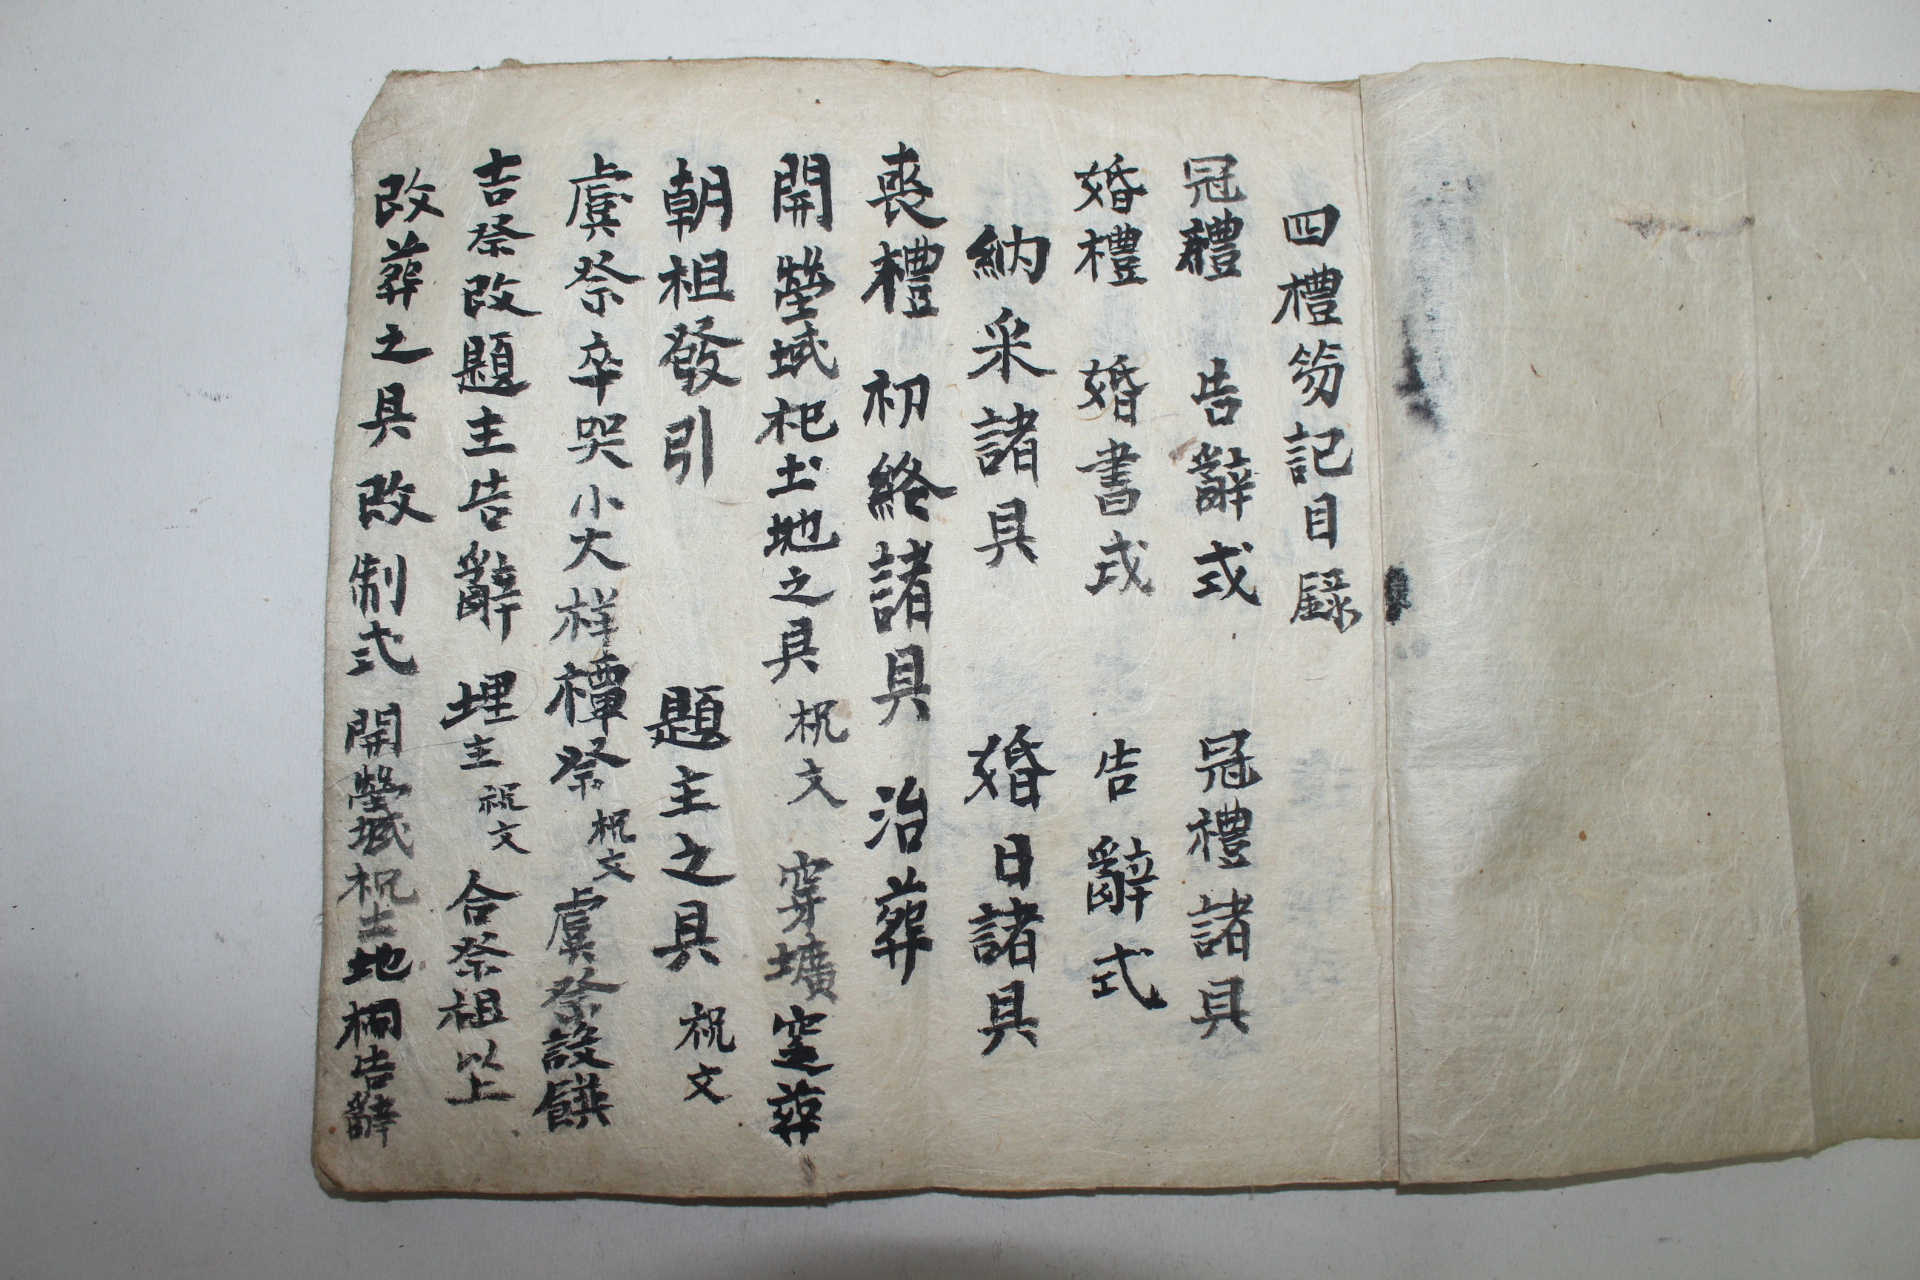 四禮笏記目錄
冠禮 告辭式 冠禮諸具
婚禮 婚書式 告辭式
納采諸具 婚日諸具
喪禮 初終諸具 治葬
開塋域祀土地之具 祝文 穿壙窆葬
朝祖發引 題主之具 祝文
虞祭卒哭小大祥禫祭 祝文 虞祭設饌
吉祭改題主告辭 埋主 祝文 合祭祖以上
改葬之具 改制式 開塋域祝土地祠告辭